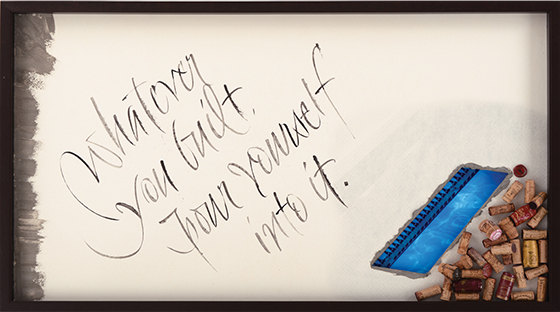 Whatever
you build,
pour yourself
into it.